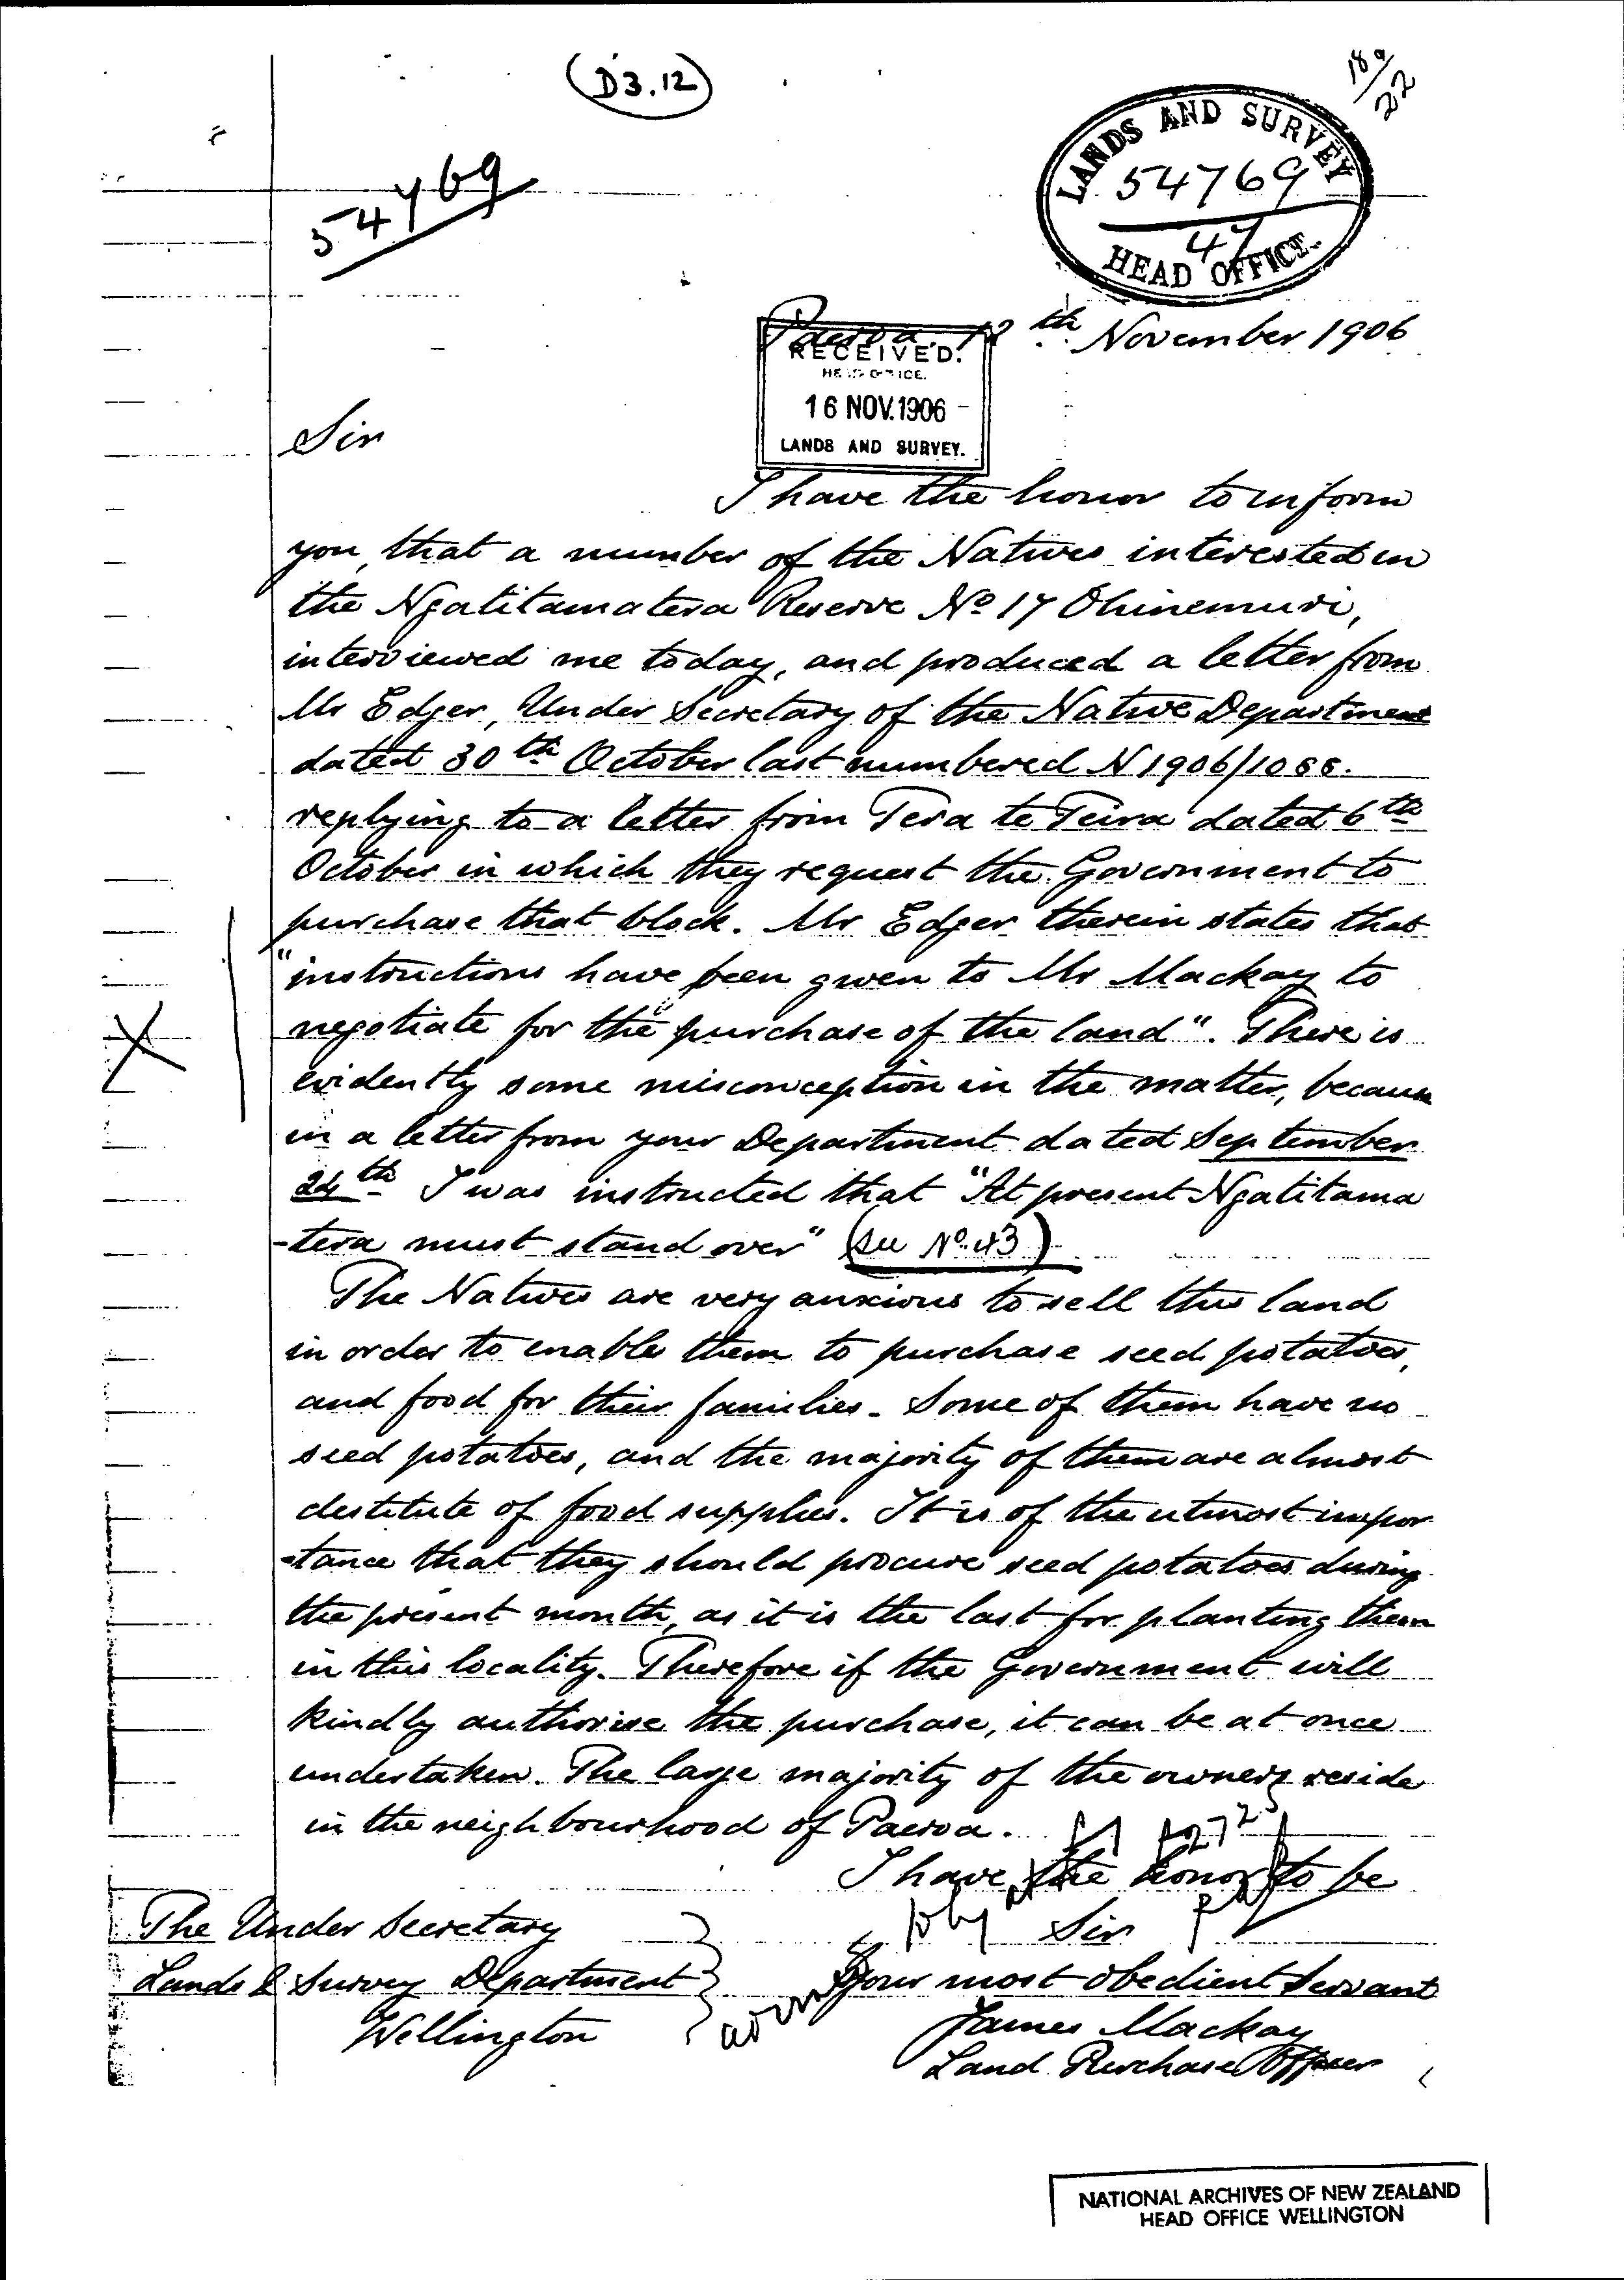 (D3.12)
54769
LANDS AND SURVEY
54769
47
HEAD OFFICE.
Paeroa 12th November 1906
RECEIVED.
HEAD OFFICE.
16 NOV. 1906
LANDS AND SURVEY.
Sir
I have the honor to inform
you, that a number of the Natives interested in
the Ngatitamatera Reserve No 17 Ohinemuri,
interviewed me today, and produced a letter from
Mr Edger, Under Secretary of the Native Department
dated 30th October last numbered N 1906/1088.
replying to a letter from Tera te Teira dated 6th
October in which they request the Government to
purchase that block. Mr Edger therein states that
"instructions have been given to Mr Mackay to
negotiate for the "purchase of the land". There is
evidently some misconception in the matter, because
in a letter from your Department dated September
24th I was instructed that "At present Ngatitama
-tera must stand over" (see No. 43)
The Natives are very anxious to sell this land
in order to enable them to purchase seed potatoes,
and food for their families. Some of them have no
seed potatoes, and the majority of them are almost
destitute of food supplies. It is of the utmost impor
-tance that they should procure seed potatoes during
the present month, as it is the last for planting them
in this locality. Therefore if the Government will
kindly authorise the purchase, it can be at once
undertaken. The large majority of the owners reside
in the neighbourhood of Paeroa.
I have the honor to be
Sir
The Under Secretary
Lands & Survey Department
Wellington
Your most obedient Servant
James Mackay
Land Purchase Officer
NATIONAL ARCHIVES OF NEW ZEALAND
HEAD OFFICE WELLINGTON